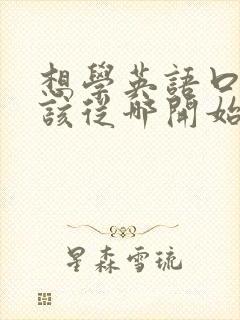 想學英語口
該從哪開始
星森雪琉